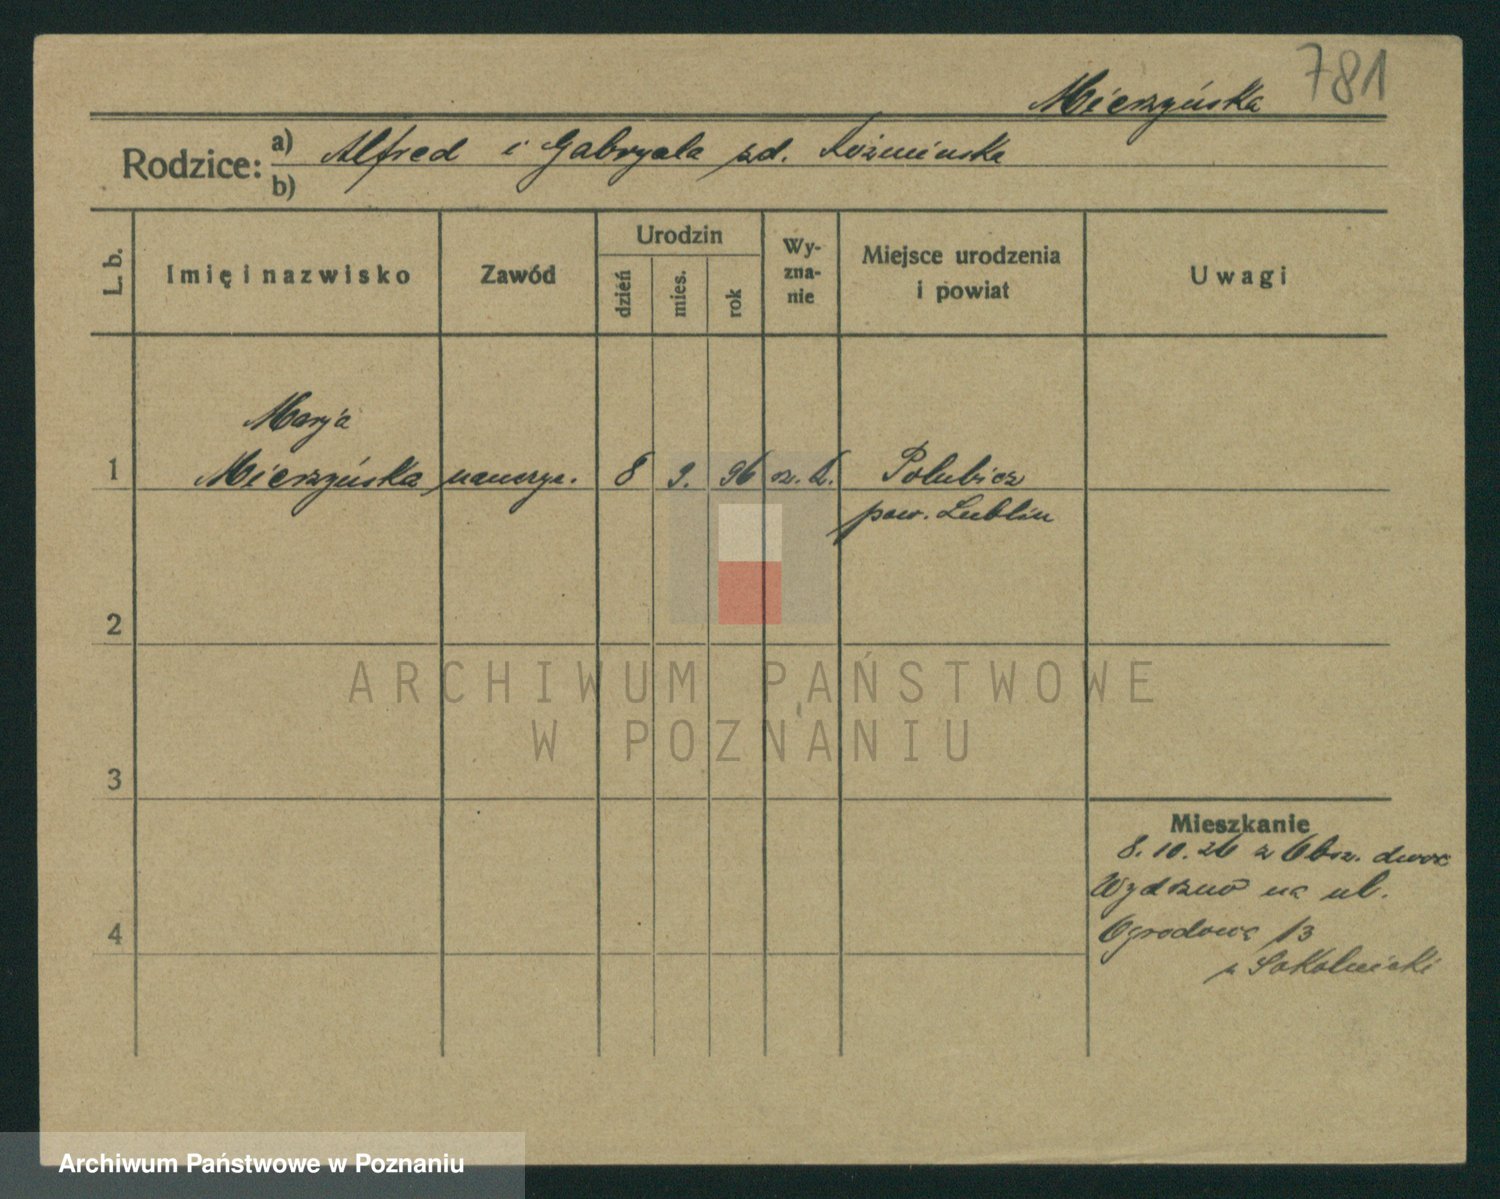 781
Mierzyńska
Rodzice:
a) Alfred i Gabryela zd. Koźmińska
b)
L. b.
Imię i nazwisko
Zawód
Urodzin
dzień
mies.
rok
Wy-
zna-
nie
Miejsce urodzenia
i powiat
Uwagi
Marja
1 Mierzyńska nauczyc. 8 9. 96 rz. k. Polubicz
pow. Lublin
2
3
4
Mieszkanie
8.10.26 z Obsz. dwor
na ul.
Ogrodową 13
u Sokolnicki
ARCHIWUM PAŃSTWOWE
W POZNANIU
Archiwum Państwowe w Poznaniu